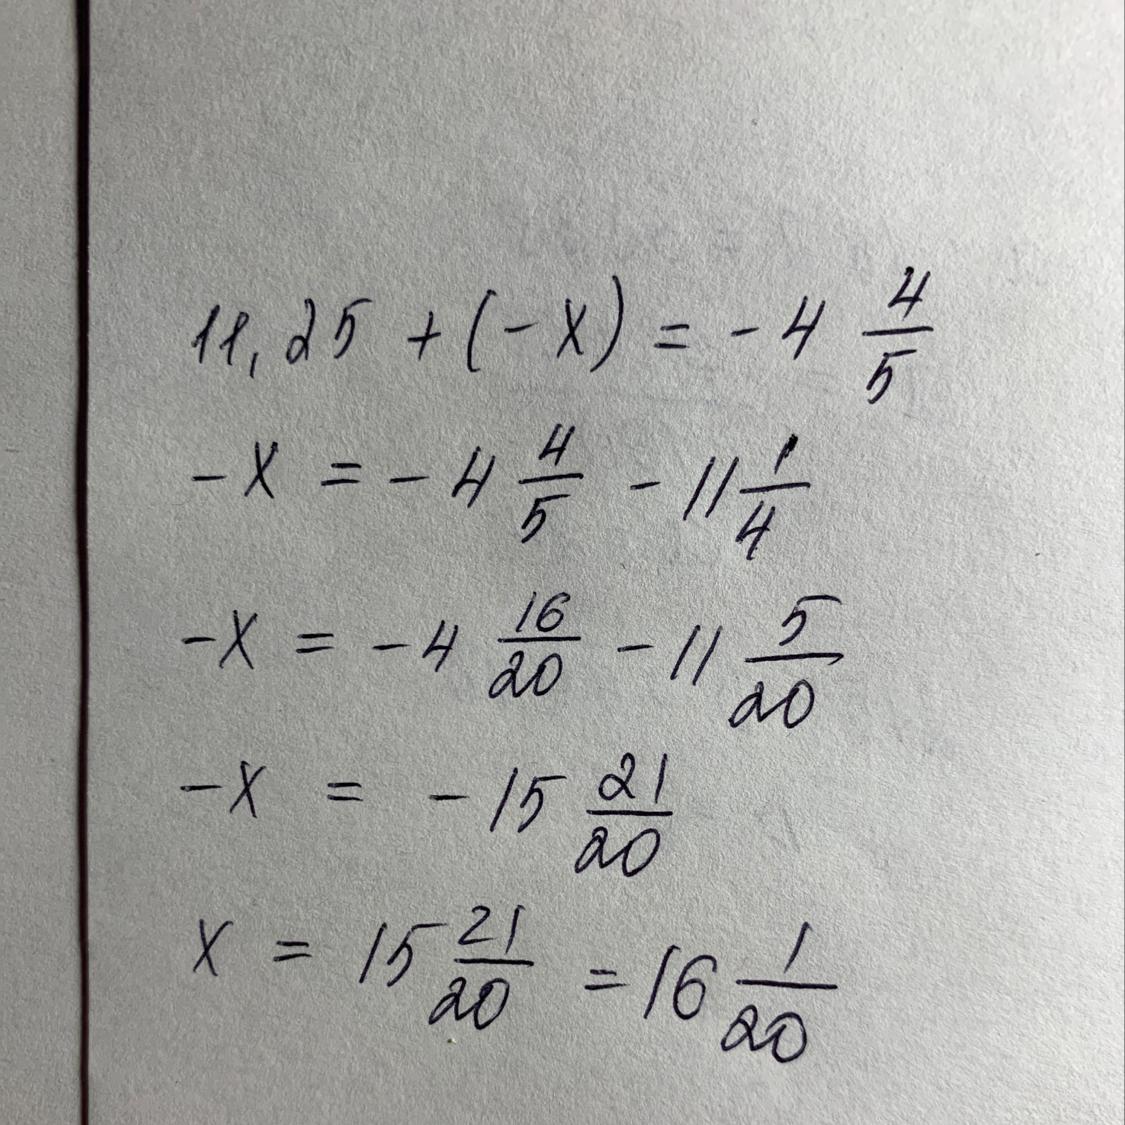 11,25 + (-x) = -4 4/5
-x = -4 4/5 - 11 1/4
-x = -4 16/20 - 11 5/20
-x = -15 21/20
x = 15 21/20 = 16 1/20